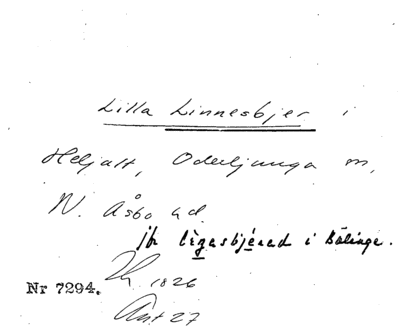 Lilla Linnesbjer i
Heljalt, Oderljunga sn,
N. Åsbo hd.
jfr lègasbjèrad i Bälinge.
Nr 7294. 1826
27